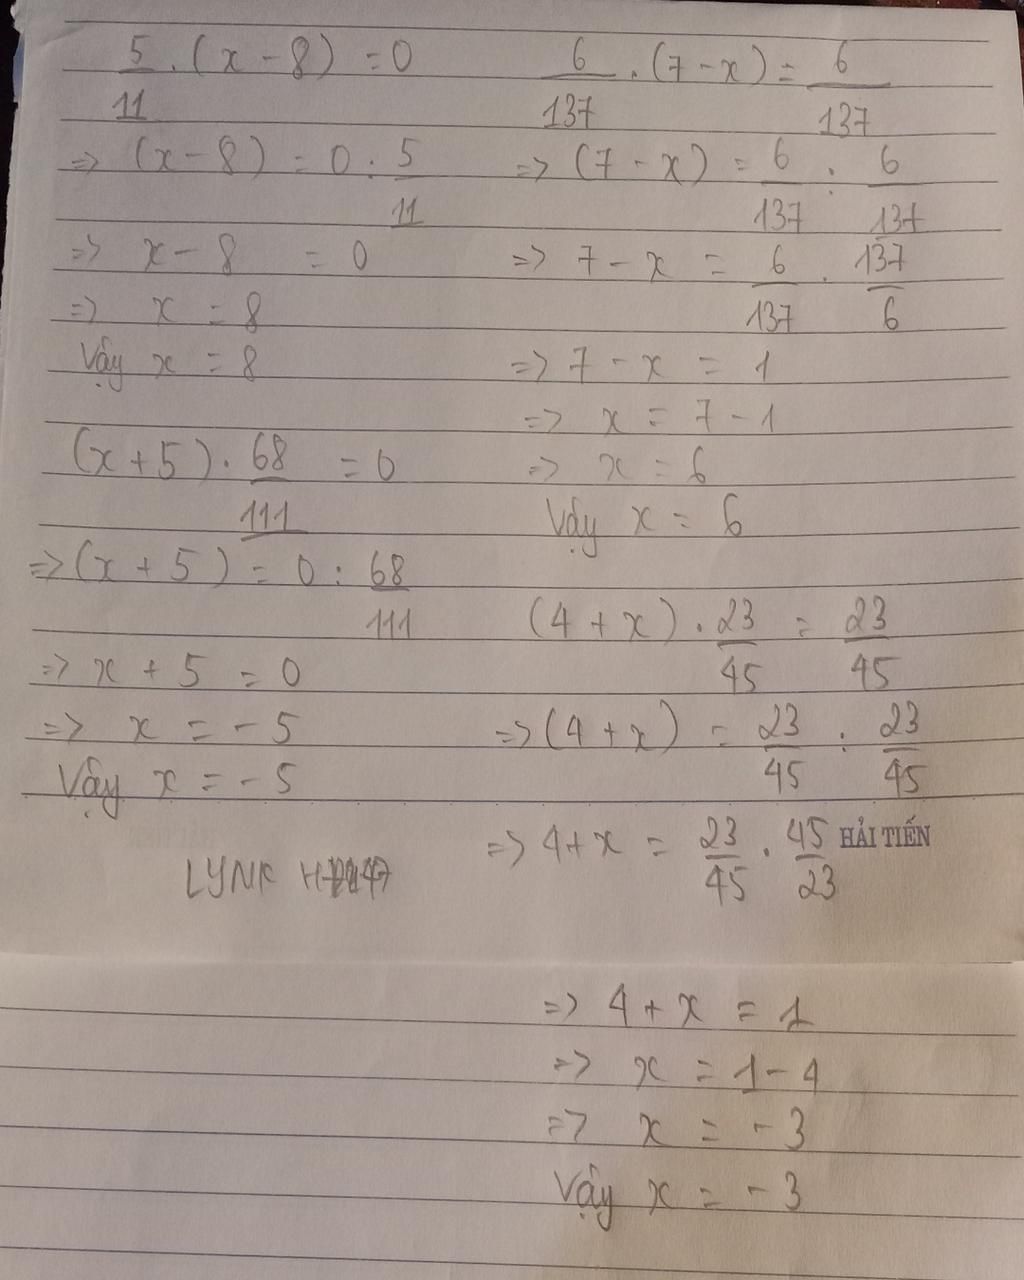 5/11 . (x - 8) = 0
=> (x - 8) = 0 : 5/11
=> x - 8 = 0
=> x = 8
Vậy x = 8
(x + 5) . 68/111 = 0
=> (x + 5) = 0 : 68/111
=> x + 5 = 0
=> x = - 5
Vậy x = - 5
LYNK
6/137 . (7 - x) = 6/137
=> (7 - x) = 6/137 : 6/137
=> 7 - x = 6/137 . 137/6
=> 7 - x = 1
=> x = 7 - 1
=> x = 6
Vậy x = 6
(4 + x) . 23/45 = 23/45
=> (4 + x) = 23/45 : 23/45
=> 4 + x = 23/45 . 45/23
HẢI TIẾN
=> 4 + x = 1
=> x = 1 - 4
=> x = - 3
Vậy x = - 3